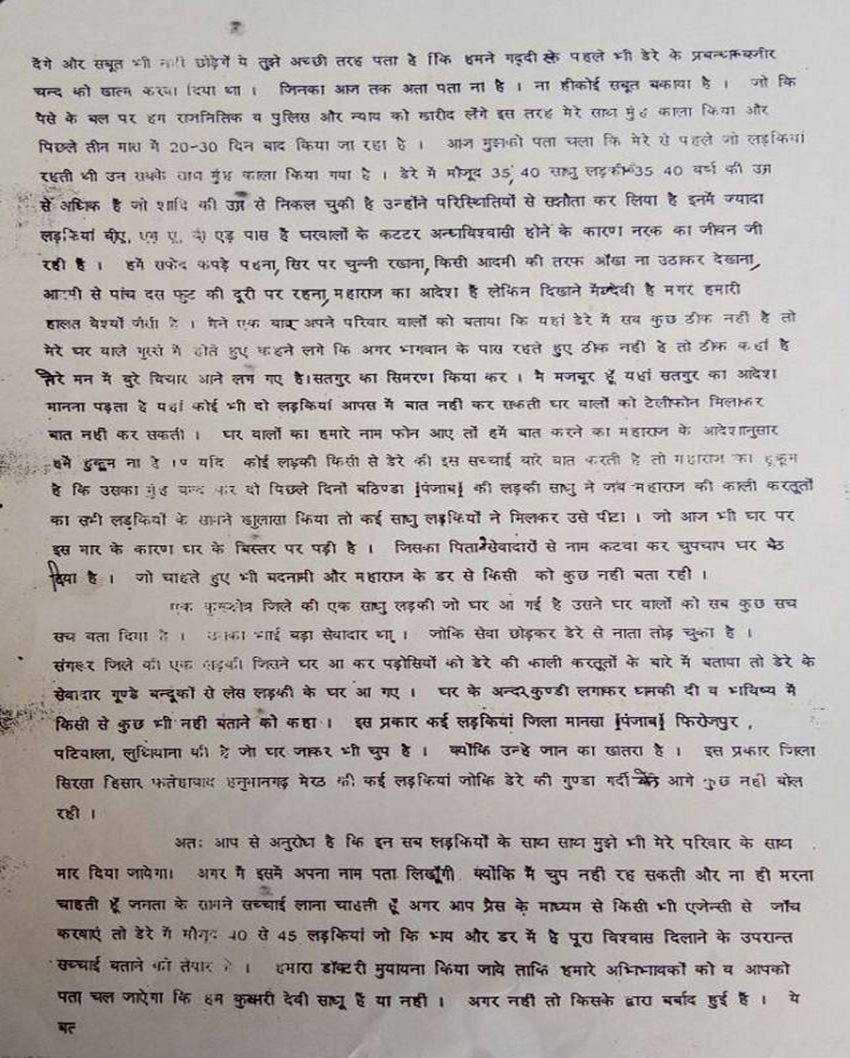 देंगे और सबूत भी नही छोड़ेगें ये तुझे अच्छी तरह पता है कि हमने गद्दी से पहले भी डेरे के प्रबन्धक फकीर
चन्द को खात्म करवा दिया था । जिनका आज तक अता पता ना है । ना हीकोई सबूत बकाया है । जो कि
पैसे के बल पर हम राजनितिक व पुलिस और न्याय को खारीद लेंगे इस तरह मेरे साथ मुंह काला किया और
पिछले तीन मास में 20-30 दिन बाद किया जा रहा है । आज मुझको पता चला कि मेरे से पहले जो लड़कियां
रहती थी उन सबके साथ मुंह काला किया गया है । डेरे में मौजूद 35, 40 साधु लड़की 35 40 वर्ष की उम्र
से अधिक है जो शादि की उम्र से निकल चुकी है उन्होंने परिस्थितियों से समझौता कर लिया है इनमें ज्यादा
लड़कियां बीए, एम ए, बी एड़ पास है घरवालों के कटटर अन्धविश्वासी होने के कारण नरक का जीवन जी
रही है । हमें सफेद कपड़े पहना, सिर पर चुन्नी रखाना, किसी आदमी की तरफ आँखा ना उठाकर देखाना,
आदमी से पांच दस फुट की दूरी पर रहना, महाराज का आदेश है लेकिन दिखाने में देवी है मगर हमारी
हालत वेश्यों जैसी है । मैने एक बार अपने परिवार वालों को बताया कि यहां डेरे में सब कुछ ठीक नहीं है तो
मेरे घर वाले गुस्से में होते हुए कहने लगे कि अगर भागवान के पास रहते हुए ठीक नही है तो ठीक कहां है
तेरे मन में बुरे विचार आने लग गए है।सतगुर का सिमरण किया कर । मै मजबूर हूँ यहां सतगुर का आदेश
मानना पड़ता है यहां कोई भी दो लड़कियां आपस में बात नही कर सकती घर वालों को टेलीफोन मिलाकर
बात नही कर सकती । घर वालों का हमारे नाम फोन आए तो हमें बात करने का महाराज के आदेशानुसार
हमें हुकूम ना है । यदि कोई लड़की किसी से डेरे की इस सच्चाई बारे बात करती है तो महाराज का हुकूम
है कि उसका मुंह बन्द कर दो पिछले दिनों बठिण्डा [पंजाब] की लड़की साधु ने जब महाराज की काली करतूतों
का सभी लड़कियों के सामने खुलासा किया तो कई साधु लड़कियों ने मिलकर उसे पीटा । जो आज भी घर पर
इस मार के कारण घर के बिस्तर पर पड़ी है । जिसका पिता सेवादारों से नाम कटवा कर चुपचाप घर बैठ
दिया है । जो चाहते हुए भी बदनामी और महाराज के डर से किसी को कुछ नही बता रही ।
एक कुरुक्षेत्र जिले की एक साधु लड़की जो घर आ गई है उसने घर वालों को सब कुछ सच
सच बता दिया है । उसका भाई बड़ा सेवादार था । जोकि सेवा छोड़कर डेरे से नाता तोड़ चुका है ।
संगरूर जिले की एक लड़की जिसने घर आ कर पड़ोसियों को डेरे की काली करतूतों के बारे में बताया तो डेरे के
सेवादार गूण्डे बन्दूकों से लेस लड़की के घर आ गए । घर के अन्दर कुण्डी लगाकर धमकी दी व भाविष्य में
किसी से कुछ भी नही बताने को कहा । इस प्रकार कई लड़कियां जिला मानसा [पंजाब] फिरोजपुर ,
पटियाला, लुधियाना की है जो घर जाकर भी चुप है । क्योंकि उन्हे जान का खातरा है । इस प्रकार जिला
सिरसा हिसार फतेहाबाद हनुमानगढ़ मेरठ की कई लड़कियां जोकि डेरे की गुण्डा गर्दी के आगे कुछ नही बोल
रही ।
अतः आप से अनुरोध है कि इन सब लड़कियों के साथ साथ मुझे भी मेरे परिवार के साथ
मार दिया जायेगा। अगर मै इसमें अपना नाम पता लिखूँगी क्योंकि मै चुप नही रह सकती और ना ही मरना
चाहती हूँ जनता के सामने सच्चाई लाना चाहती हूँ अगर आप प्रैस के माध्यम से किसी भी एजेन्सी से जाँच
करवाएं तो डेरे में मौजूद 40 से 45 लड़कियां जो कि भय और डर में है पूरा विश्वास दिलाने के उपरान्त
सच्चाई बताने को तैयार है । हमारा डॉक्टरी मुयायना किया जावे ताकि हमारे अभिभावकों को व आपको
पता चल जाऐगा कि हम कुमारी देवी साधू है या नही । अगर नही तो किसके द्वारा बर्बाद हुई है । ये
बत